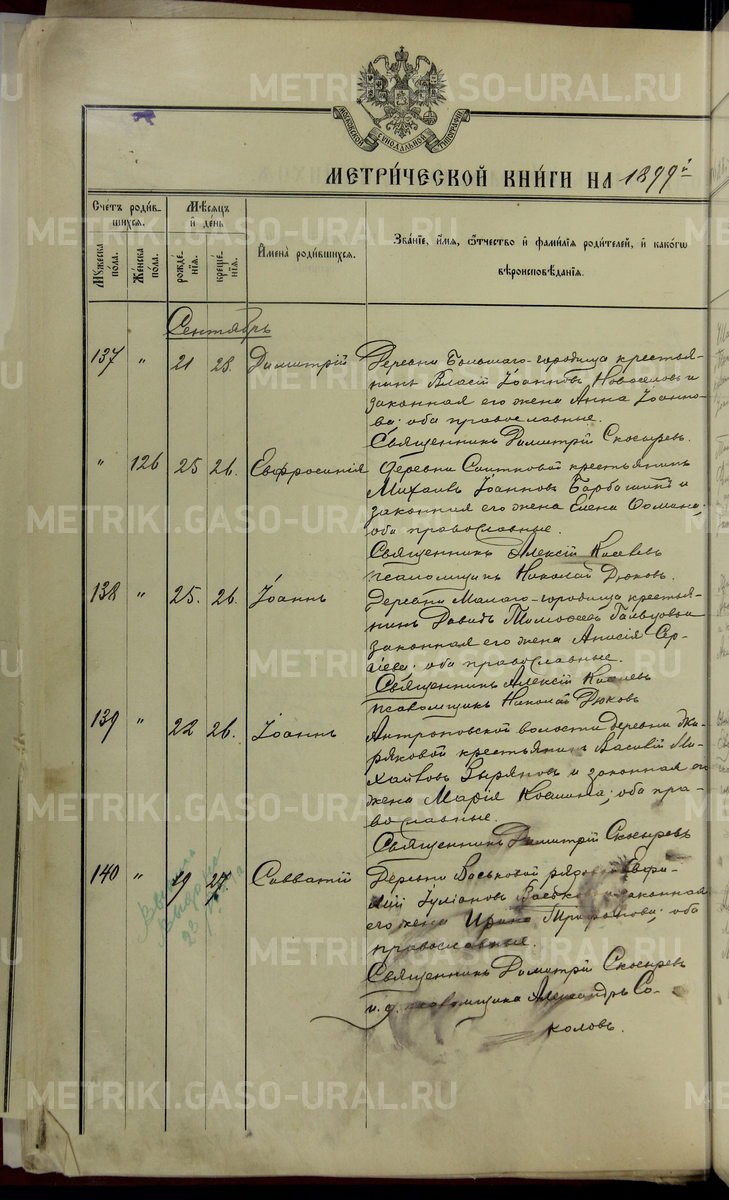 МОСКОВСКОЙ СУНОДАЛЬНОЙ ТИПОГРАФІИ
МЕТРИ́ЧЕСКОЙ КНИ́ГИ НА 1899 й
Сче́тъ роди́в-
шихся.
Мꙋ́жеска
по́ла.
Же́нска
по́ла.
Мѣ́сяцъ
и҆ де́нь
рожде́-
нїя.
креще́-
нїя.
И҆мена̀ роди́вшихся.
Зва́нїе, и҆́мя, ѻ҆́тчество и҆ фами́лїя роди́телей, и҆ како́гѡ
вѣроисповѣ́данїя.
Сентябрь
137 " 21 28. Димитрій
Деревни Большаго-городища крестья-
нинъ Власій Іоанновъ Новоселовъ и
законная его жена Анна Іоанно-
ва; оба православные.
Священникъ Димитрій Скосыревъ.
" 126 25 26. Евфросинія
Деревни крестьянинъ
Михаилъ Іоанновъ и
законная его жена Елена;
оба православные.
Священникъ Алексій
псаломщикъ Николай Дюковъ.
138 " 25. 26. Іоаннъ
Деревни Малаго-городища крестья-
нинъ Давидъ Тимофеевъ и
законная его жена Анисія Сер-
гіева; оба православные.
Священникъ Алексій
псаломщикъ Николай Дюковъ
139 " 22 26. Іоаннъ
Антроповской волости деревни
крестьянинъ Василій Ми-
хайловъ Зыряновъ и законная его
жена Марія Космина; оба пра-
вославные.
Священникъ Димитрій Скосыревъ
140 " 19 27. Савватій
Деревни Васьковой рядовой Евфи-
мій Іуліановъ и законная
его жена Ирина Трифонова; оба
православные.
Священникъ Димитрій Скосыревъ
и. д. псаломщика Александръ Со-
коловъ.
METRIKI.GASO-URAL.RU